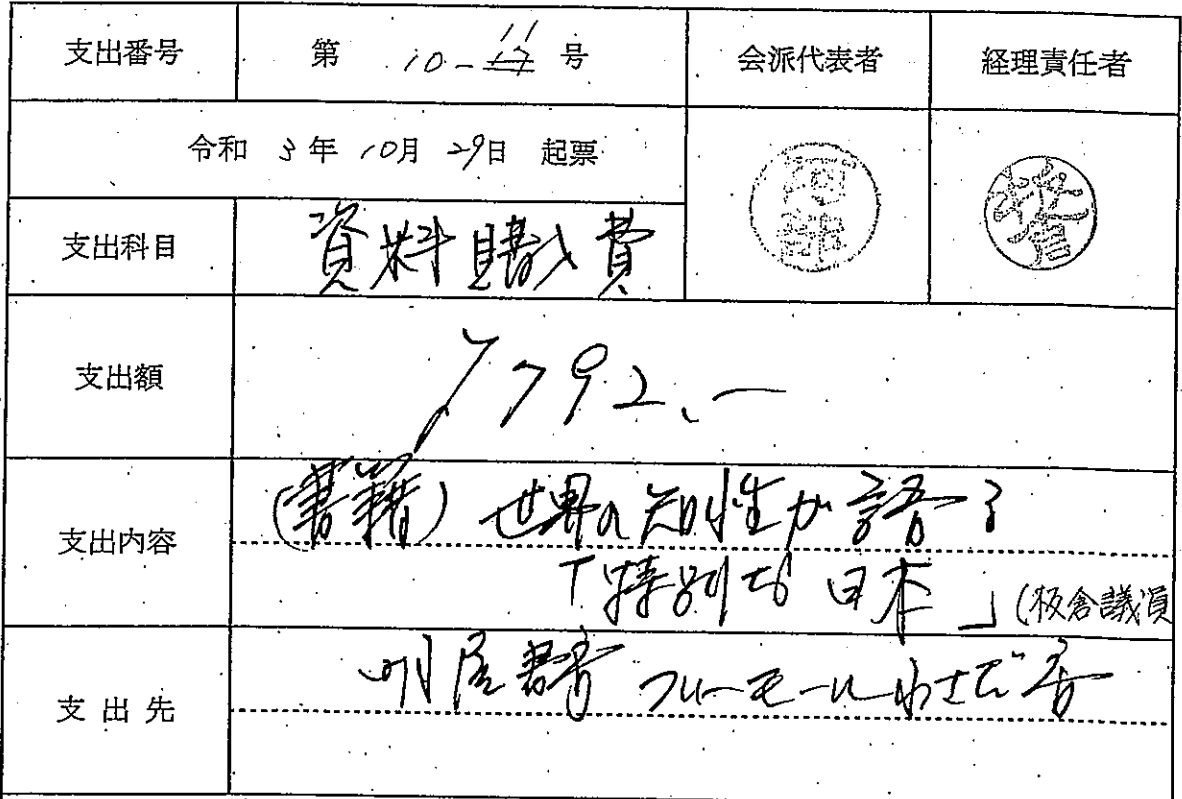 支出番号 第 10-11 号 会派代表者 経理責任者
令和 3年 10月 29日 起票
阿部
板倉
支出科目 資料購入費
支出額 ¥792.—
支出内容 (書籍) 世界の知性が語る
「特別な日本」(板倉議員
支出先 明屋書店 フレーモールわさだ店